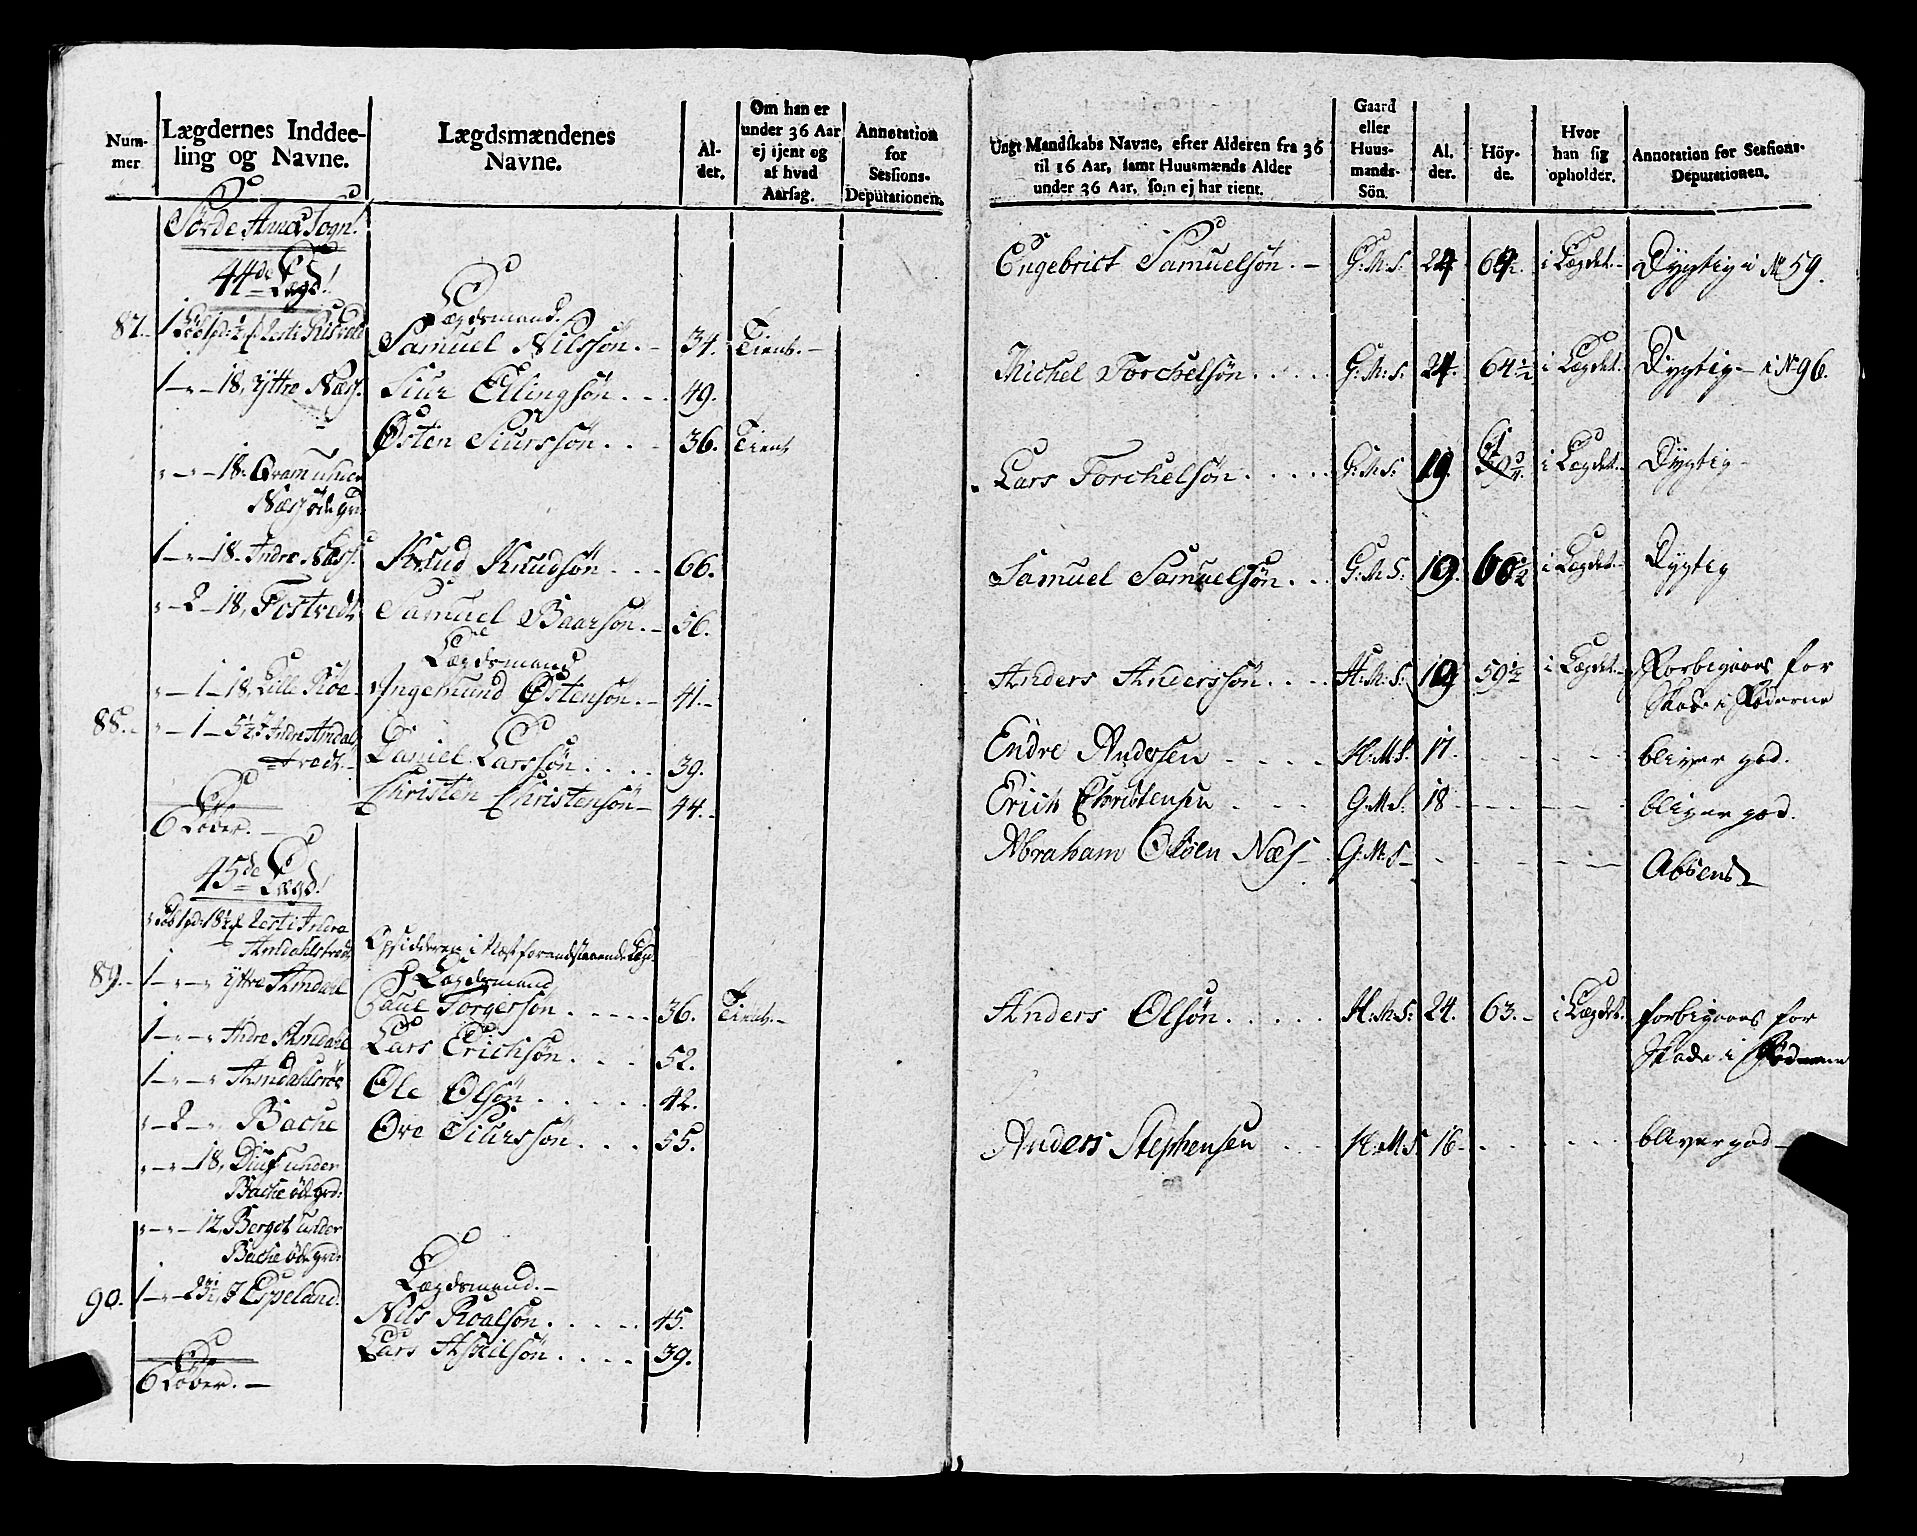 Num-
mer
Lægdernes Inddee-
ling og Navne.
Lægdsmændenes
Navne.
Al-
der.
Om han er
under 36 Aar
ej tjent og
af hvad
Aarsag.
Annotation
for
Sessions-
Deputationen.
44de Lægd!
Lægdsmand.
87. Samuel Nilssøn. 34. Tient.
1 18, Yttre Næs. Siur Ellingsøn. 49.
Østen Siurssøn. 36. Tient
18. under
Næs øde gr:
1 18. Indre Næs. Knud Knudsøn 66.
2 18, Samuel Baarsøn. 56.
Lægdsmand
1 18, Lille Røe Ingemund Østensøn. 41.
88. 1 Daniel Larssøn. 39.
Christen Christensøn 44.
6 Løber.
45de Lægd!
89. 1 Yttre Amdahl
Lægdsmand
Paul Torgersøn 36. Tient.
1 Indre Amdahl Lars Erichsøn. 52.
1 Amdahlsrøe Ole Olsøn 42.
2 Bache Ove Siurssøn. 55.
18, under
Bache øde grd:
12, under
Bache øde grd:
Lægdsmand.
90. 1 Espeland. Nils Roalsøn. 45.
Lars Askilsøn 39.
6 Løber.
Ungt Mandskabs Navne, efter Alderen fra 36
til 16 Aar, samt Huusmænds Alder
under 36 Aar, som ej har tient.
Gaard
eller
Huus-
mands-
Sön.
Al.
der.
Höy-
de.
Hvor
han sig
opholder.
Annotation for Sessions-
Deputationen.
Engebrict Samuelsøn. G:M:S: 24 i Lægdet. Dygtig i No 59.
Michel Torchelsøn G:M:S: 24. 64½ i Lægdet. Dygtig i No 96.
Lars Torchelsøn G:M:S: 19. i Lægdet. Dygtig
Samuel Samuelsøn G:M:S: 19. i Lægdet. Dygtig
Anders Anderssøn H:M:S: 19 59½ i Lægdet Forbigaaes for
Skade i Fødderne
Endre Andersen H:M:S: 17. bliver god.
Erich Christensen G:M:S: 18 bliver god.
Abraham Næs G:M:S Absent
Anders Olsøn H:M:S: 24. 63. i Lægdet. forbigaaes for
Skade i Fødderne
Anders Stephensen H:M:S 16 bliver god